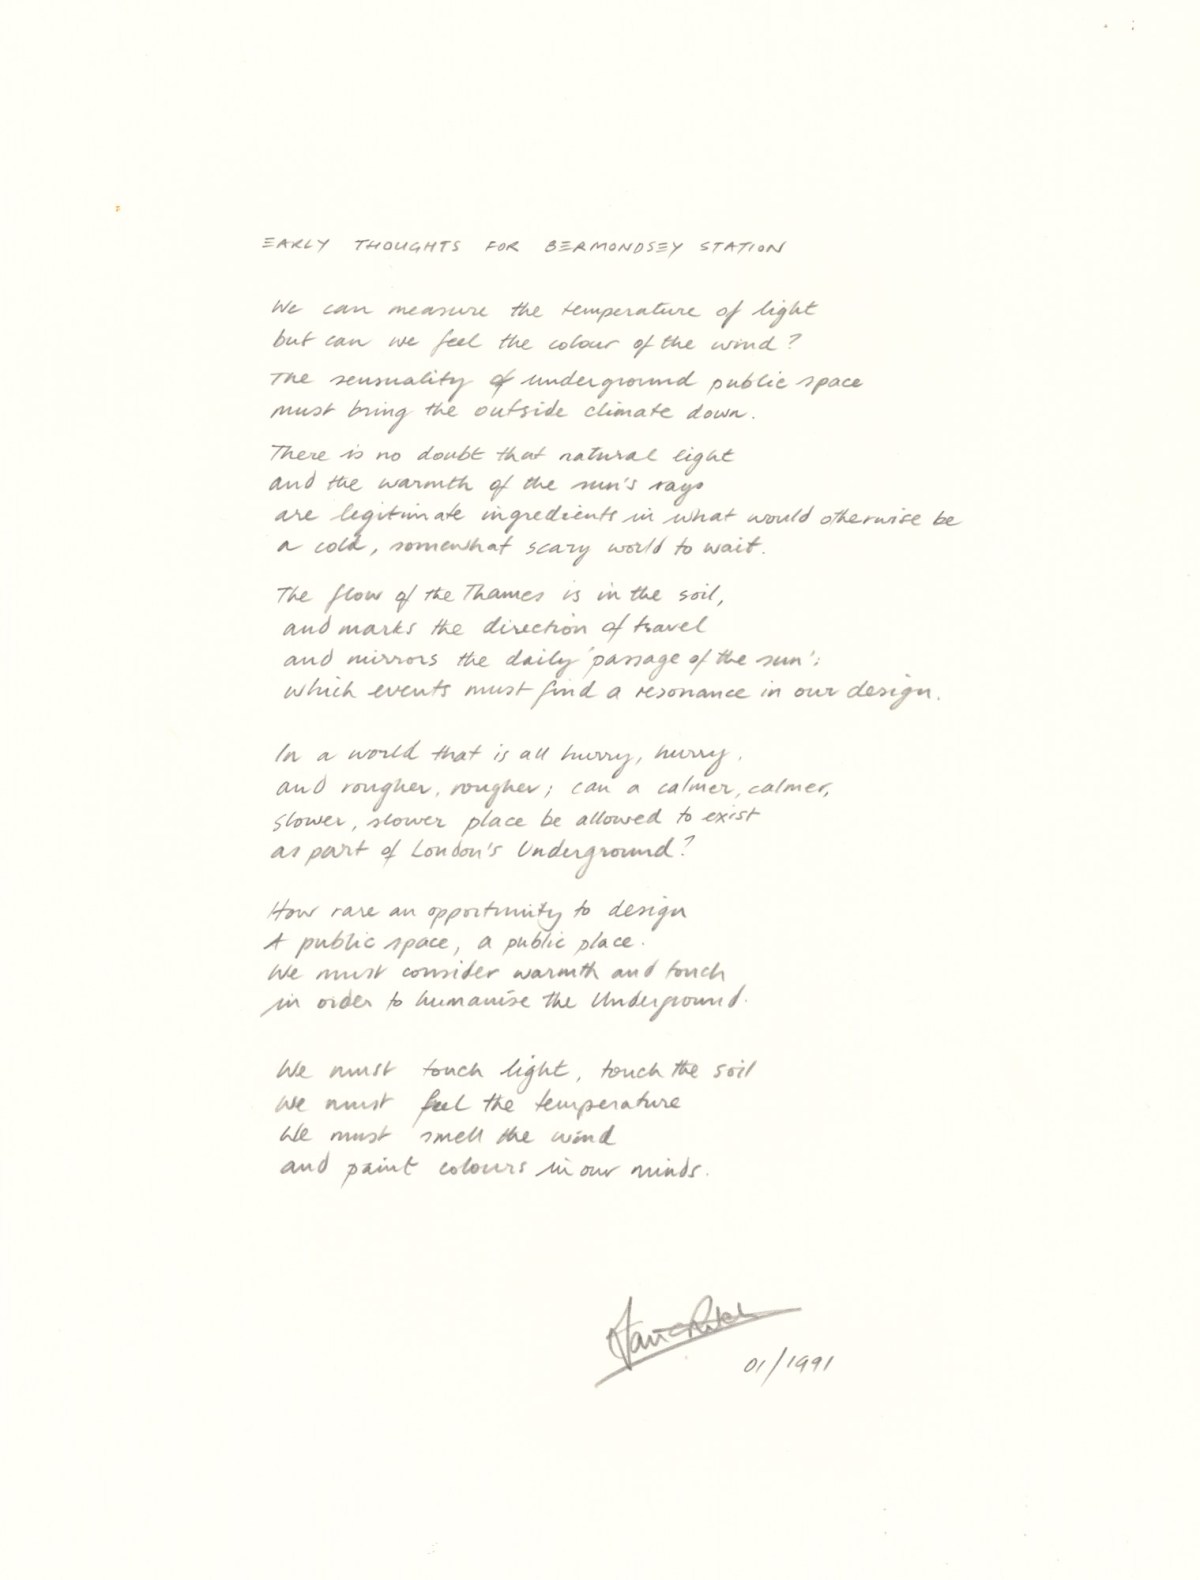 EARLY THOUGHTS FOR BERMONDSEY STATION
We can measure the temperature of light
but can we feel the colour of the wind?
The sensuality of underground public space
must bring the outside climate down.
There is no doubt that natural light
and the warmth of the sun's rays
are legitimate ingredients in what would otherwise be
a cold, somewhat scary world to wait.
The flow of the Thames is in the soil,
and marks the direction of travel
and mirrors the daily 'passage of the sun';
which events must find a resonance in our design.
In a world that is all hurry, hurry,
and rougher, rougher; can a calmer, calmer,
slower, slower place be allowed to exist
as part of London's Underground?
How rare an opportunity to design
A public space, a public place.
We must consider warmth and touch
in order to humanise the Underground.
We must touch light, touch the soil
We must feel the temperature
We must smell the wind
and paint colours in our minds.
01/1991